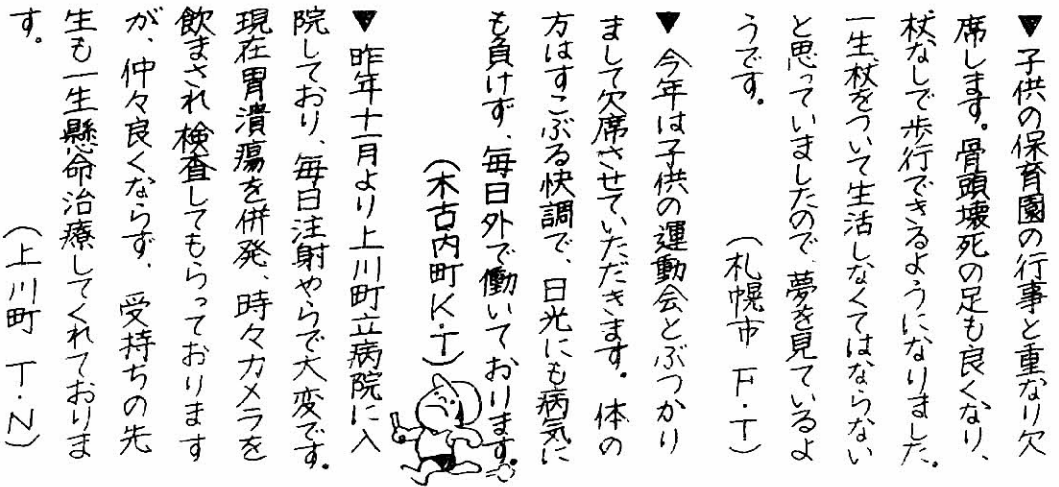 ▼子供の保育園の行事と重なり欠
席します。骨頭壊死の足も良くなり、
杖なしで歩行できるようになりました。
一生杖をついて生活しなくてはならない
と思っていましたので、夢を見ているよ
うです。
(札幌市 F・T)
▼今年は子供の運動会とぶつかり
まして欠席させていただきます。体の
方はすこぶる快調で、日光にも病気に
も負けず、毎日外で働いております。
(木古内町K・T)
▼昨年十一月より上川町立病院に入
院しており、毎日注射やらで大変です。
現在胃潰瘍を併発、時々カメラを
飲まされ検査してもらっております
が、仲々良くならず、受持ちの先
生も一生懸命治療してくれておりま
す。
(上川町 T・N)